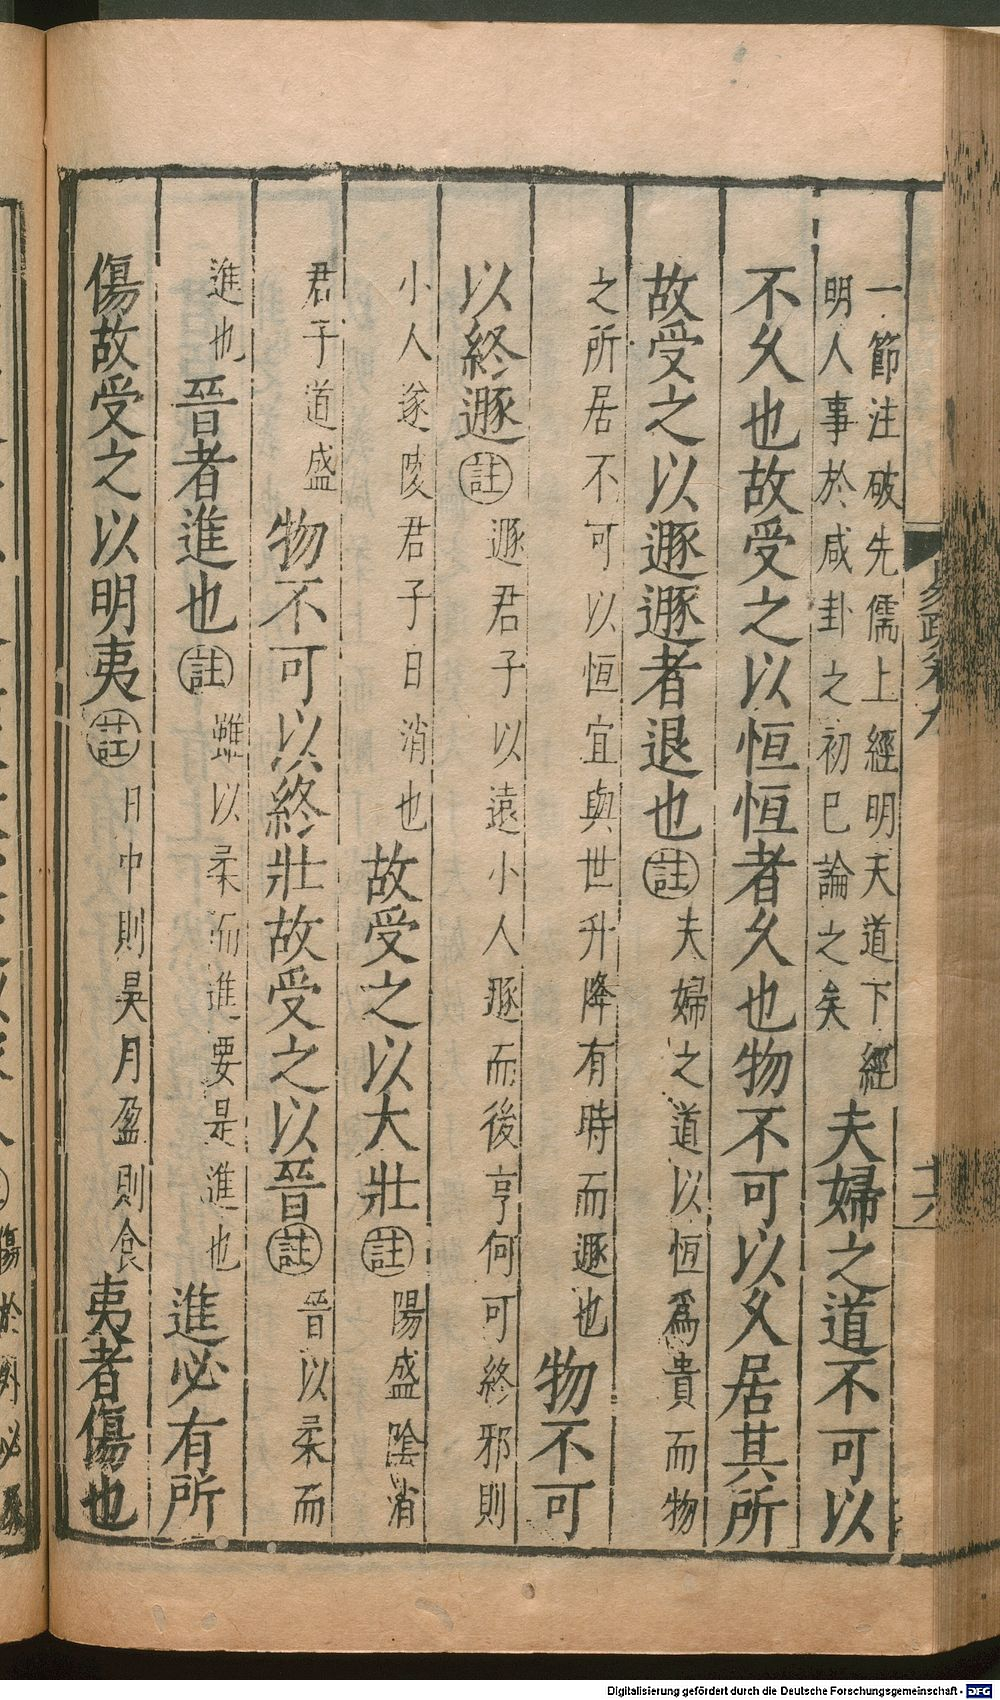 一節注破先儒上經明天道下經
明人事於咸卦之初已論之矣
夫婦之道不可以
不久也故受之以恒恒者久也物不可以久居其所
故受之以遯遯者退也註夫婦之道以恒爲貴而物
之所居不可以恒宜與世升降有時而遯也物不可
以終遯註遯君子以遠小人遯而後亨何可終邪則
小人遂陵君子日消也故受之以大壯註陽盛陰消
君子道盛物不可以終壯故受之以晉註晉以柔而
進也晉者進也註雖以柔而進要是進也進必有所
傷故受之以明夷註日中則昊月盈則食夷者傷也
易疏卷九
傷於外必
Digitalisierung gefördert durch die Deutsche Forschungsgemeinschaft - DFG